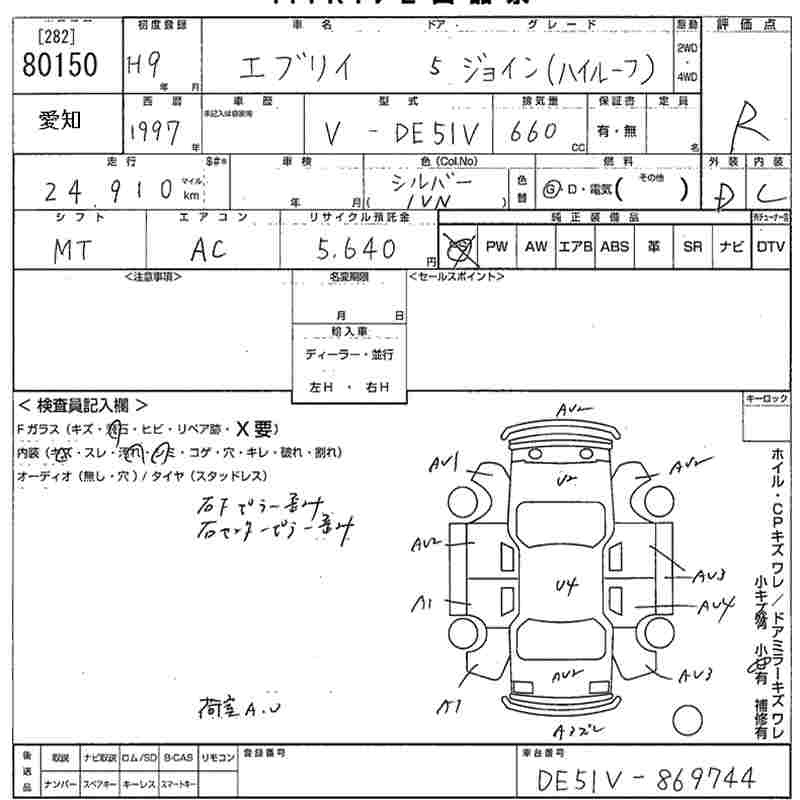 [282]
80150
初度登録
H9
年 月
車名 ドア グレード
エブリイ 5 ジョイン(ハイルーフ)
駆動
2WD
・
4WD
評価点
R
愛知
西暦
1997
年
車歴
未記入は自家用
型式
V - DE51V
排気量
660
CC
保証書
有・無
定員
名
走行
24,910
マイル
km
車検
年 月
色(Col.No)
シルバー
( 1VN )
色替
燃料
G・D・電気( その他 )
外装
D
内装
C
シフト
MT
エアコン
AC
リサイクル預託金
5.640
円
純正装備品
PW AW エアB ABS 革 SR ナビ
DTV
<注意事項>
名変期限
月 日
輸入車
ディーラー・並行
左H ・ 右H
<セールスポイント>
< 検査員記入欄 >
Fガラス(キズ・飛石・ヒビ・リペア跡・X要)
内装(キズ・スレ・汚れ・シミ・コゲ・穴・キレ・破れ・割れ)
オーディオ(無し・穴)/ タイヤ(スタッドレス)
右Fピラー歪み
右センターピラー歪み
荷室A.U
キーロック
AV2
AV1
U2
AV2
AV2
AV3
U4
A1
AV4
AV2
A1
AV3
Aコスレ
ホイル・CPキズ ワレ / ドアミラーキズ ワレ
小キズ有 小凹有 補修有
後送品
取説 ナビ取説 ロム/SD B-CAS リモコン
ナンバー スペアキー キーレス スマートキー
登録番号
車台番号
DE51V - 869744